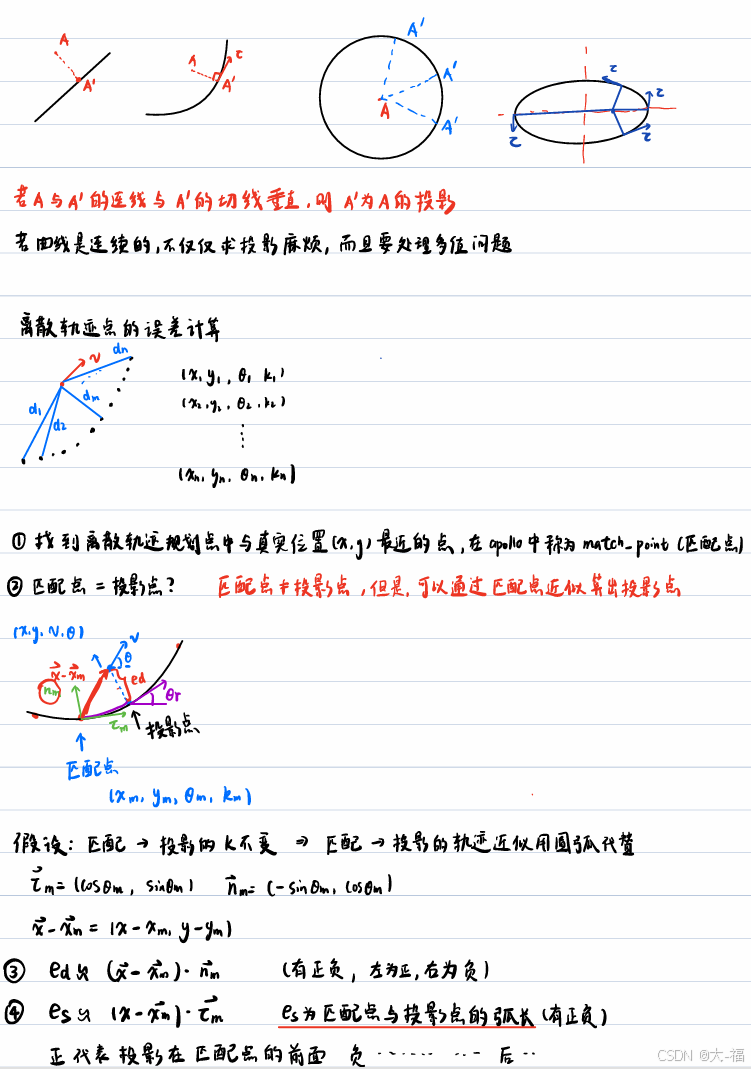 A A'
A A' τ
A A' A' A'
τ τ τ τ
若A与A'的连线与A'的切线垂直,则A'为A的投影
若曲线是连续的,不仅仅求投影麻烦,而且要处理多值问题
离散轨迹点的误差计算
d1 d2 dm dn v
(x, y1, θ1 k1)
(x2, y2, θ2, k2)
⋮
(xn, yn, θn, kn)
① 找到离散轨迹规划点中与真实位置(x,y)最近的点,在apollo中称为match_point(匹配点)
② 匹配点 = 投影点? 匹配点≠投影点,但是,可以通过匹配点近似算出投影点
(x,y,v,θ)
v θ
x⃗-x⃗m ed
nm θr
τm 投影点
匹配点
(xm, ym, θm, km)
假设:匹配 → 投影的 k不变 ⇒ 匹配 → 投影的轨迹近似用圆弧代替
τ⃗m=(cosθm, sinθm) n⃗m=(-sinθm, cosθm)
x⃗-x⃗m = (x-xm, y-ym)
③ ed ≈ (x⃗-x⃗m)·n⃗m (有正负,左为正,右为负)
④ es ≈ (x-x⃗m)·τ⃗m es为匹配点与投影点的弧长(有正负)
正代表投影在匹配点的前面 负 ········ 后 ··
CSDN @大-福